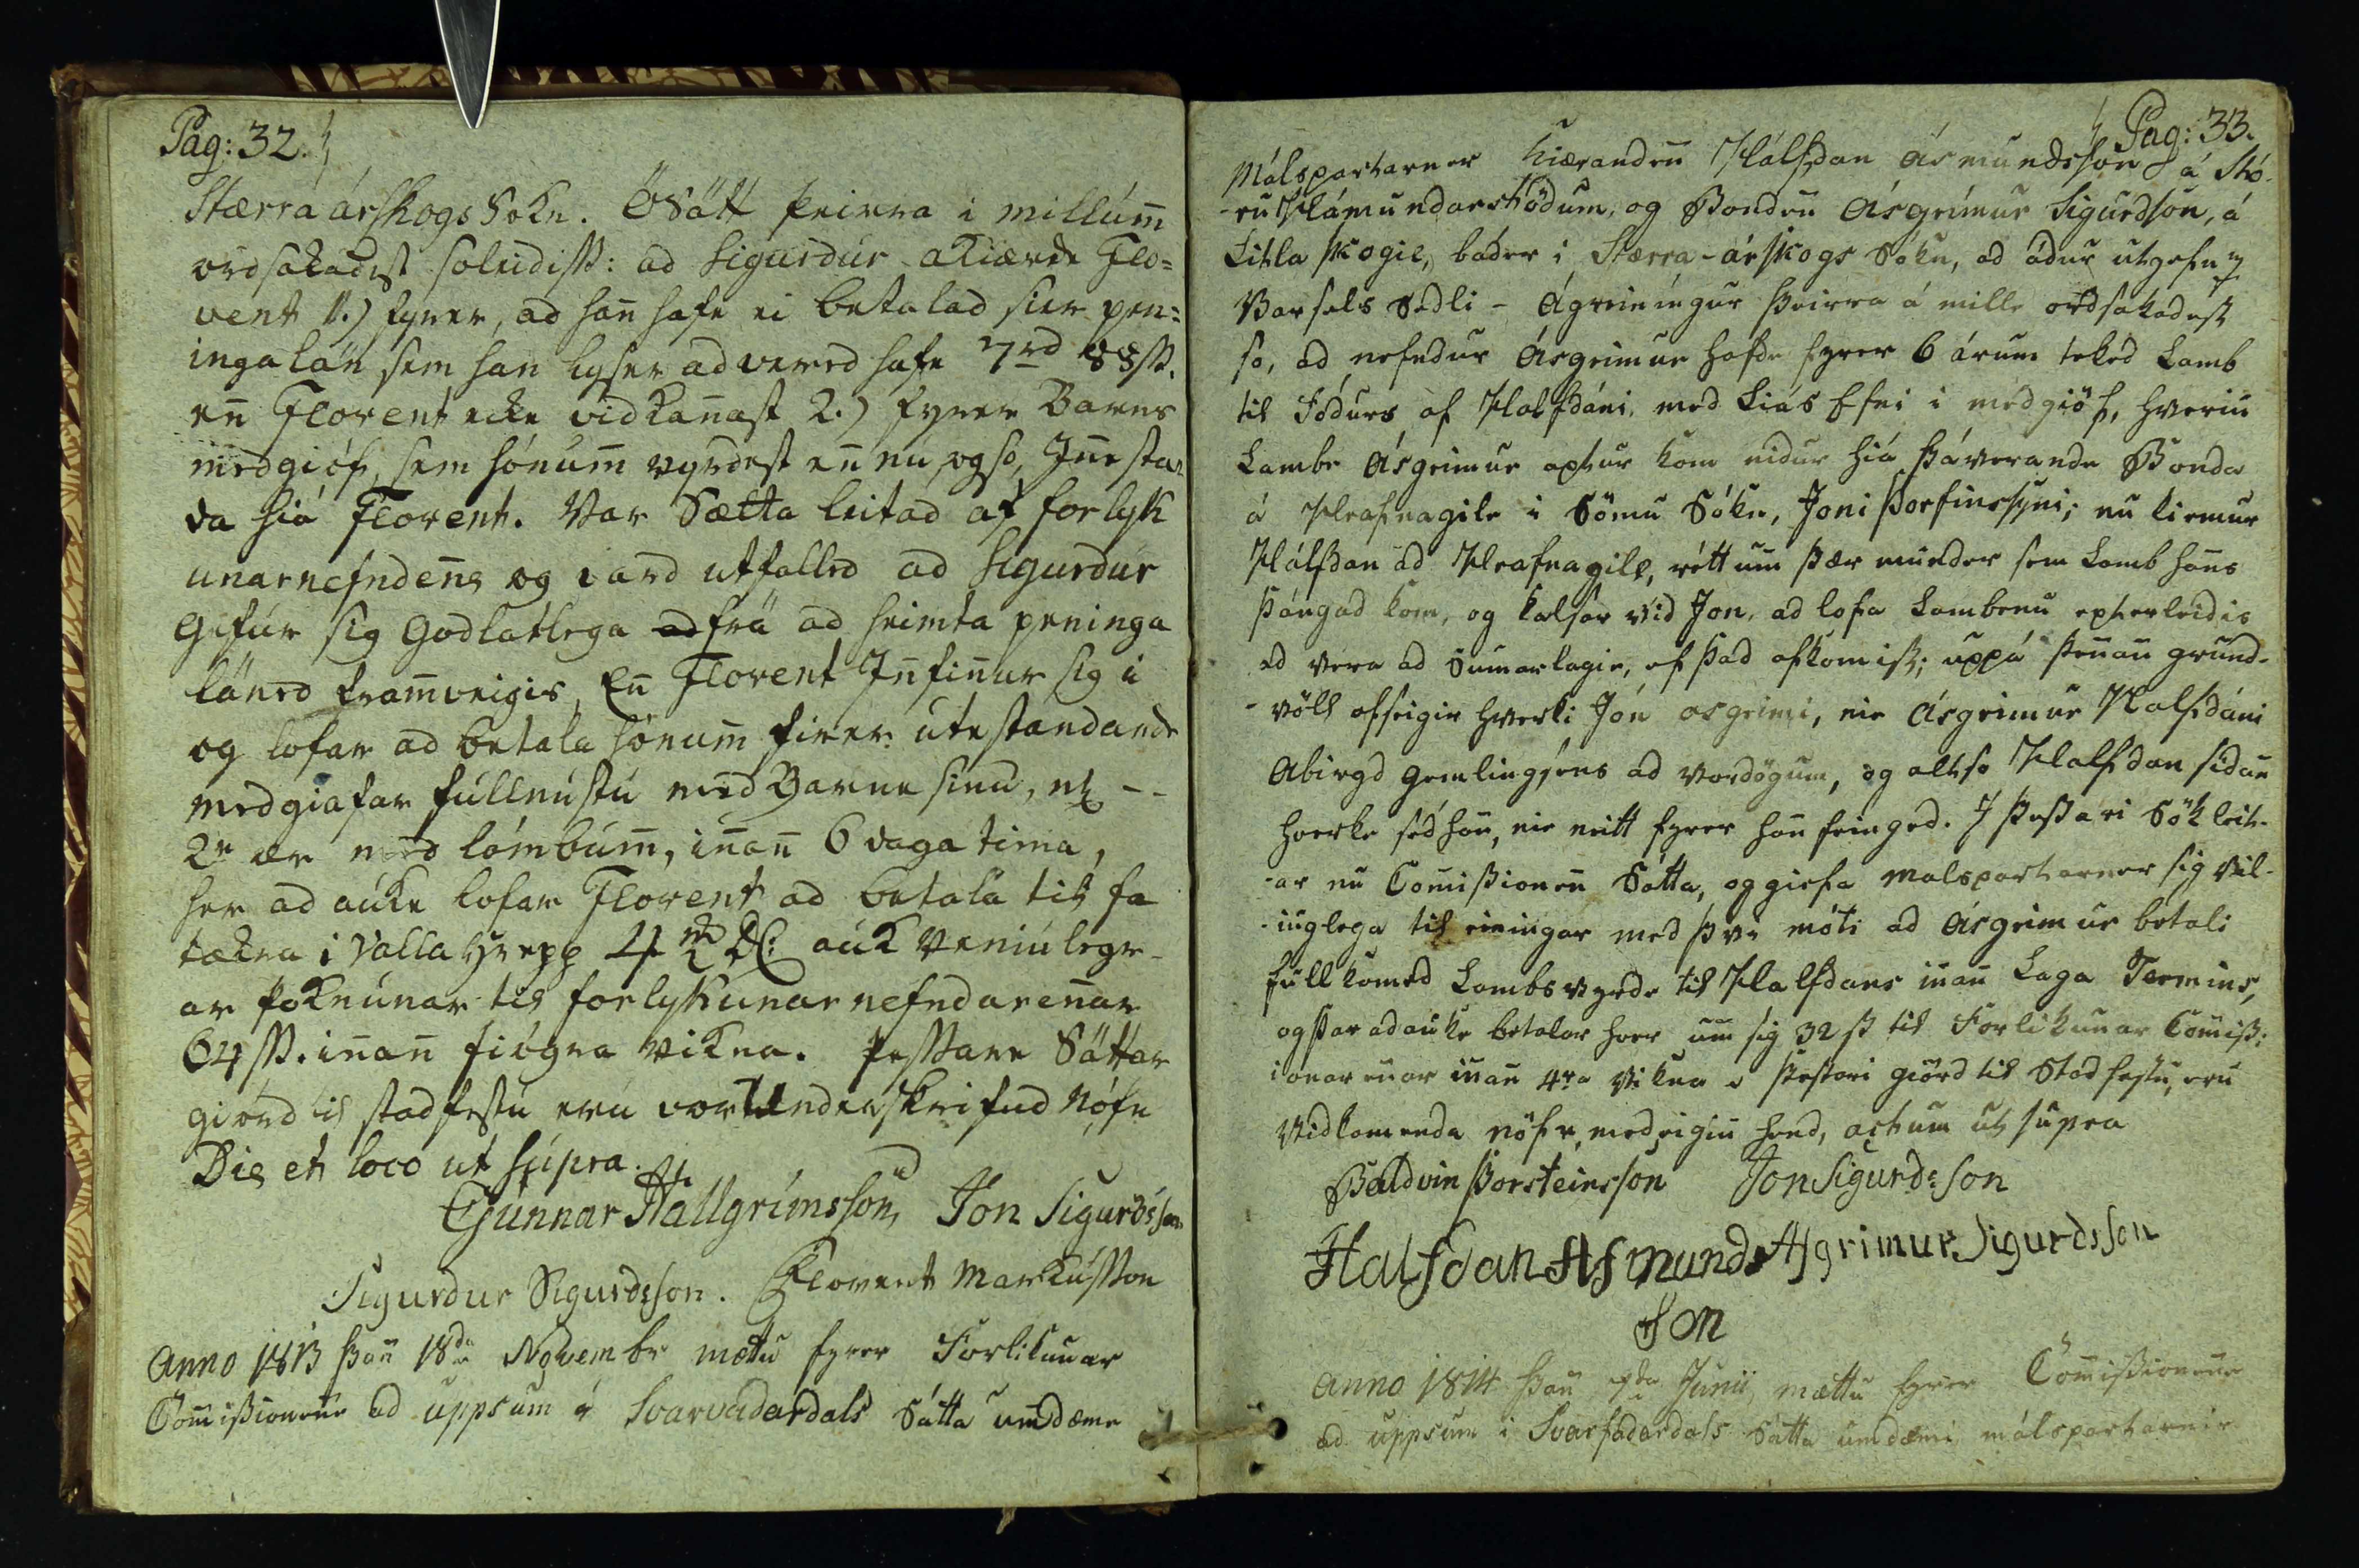 Pag: 32.
Stærra árskogs Sokn. Ósátt þeirra i millum̄
orsakadest soleidiss: ad Sigurdur akiærde Flo=
vent 1.) fyrer, ad han̄ hafe ei betalad sier pen=
ingalán sem han lyser ad vered hafe 7rd 88ss.
en̄ Florent ecke vidkan̄ast 2.) fyrer Barns
medgióf, sem hónum̄ vyrdest en̄ nú, og so, In̄estan
da hiá Florent. Var Sætta leitad af forlyk
unarnefnden̄e og vard utfalled ad Sigurdur
Gefur sig Godlatlega frá ad heimta peninga
láned fram̄veigis, En̄ Florent In̄fin̄ur sig i
og lofar ad betala hónum̄ firer útestandande
medgiafar fullnustu med Barne sinu, nl --
2r ær med lómbum̄, in̄an̄ 6 daga tima,
her ad auke lofar Florent ad betala til fa
tækra i Valla Hrepp 4 rd DC: auk veniúlegr-
ar þoknunar til forlykunar nefndaren̄ar
64 ss. in̄an̄ fiógra vikna. þessare Sáttar
giórd til stadfestu eru vor Underskrifud Nófn
Die et loco ut supra.
Gunnar Hallgrimsson, Jon Sigurdsson
Sigurdur Sigurdsson. Florent Markússon
Anno 1813 þan̄ 18da Novembr mættu fyrer Forlikunar
Com̄issionene ad uppsum i Svarvadardals Sátta umdæme
Pag: 33.
Málspartarner Kiæranden̄ Hálfdan Ásmundsson á Stó-
-ru Hámundarstödum, og Bonden̄ Ásgrímur Sigurdson, á
Litla skogie, báder i Stærra-árskogs Sókn, ad ádur utgefnu
Varsels Sedli - Ágreiningur þeirra á mille orsakadest
so, ad nefndur Ásgrimur hafde fyrer 6 árum teked Lamb
til Fódurs af Halfdáni, med Liás Efni i medgiöf, hveriu
Lambe Ásgrimur aptur kom nidur hiá þáverande Bonda
á Hrafnagile i Sömu Sókn, Joni Þorfinssyni; nu kiemur
Hálfdan ad Hrafnagile, rétt um̄ þær mundir sem Lamb han̄s
þángad kom, og talar vid Jon, ad lofa Lambenu epterleidis
ad vera ad Sumarlagie, ef þad afkomist; uppá þen̄an̄ grund-
-völl afseigir hverki Jón asgrimi, nie Ásgrimur Halfdáni
Abirgd Gemlingsens ad vordögum, og altso Halfdan sidan
hverke séd han̄, nie neitt fyrer han̄ feinged. I þessari Sök leit-
-ar nu Com̄issionen̄ Sátta, og giefa malspartarner sig vil-
-iuglega til einingar med þvi móti ad Ásgrimur betali
fullkomed Lambsvyrde til Halfdans in̄an̄ Laga Termins,
og þar adauke betalar hver um sig 32 ss til Forlikunar Com̄iss:
ionar en̄ar in̄an̄ 4ra Vikna þessari giörd til Stadfestu, eru
Vidkomenda nöfn med eigin hend, actum ut supra
Baldvin Þorsteinsson Jon Sigurdsson
Halfdan Asmunds Asgrimur Sigurdsson
son
Anno 1814 þan̄ Junii, mættu fyrer Com̄issionene
ad uppsum i Svarfadardals Sátta umdæmi málspartarnir